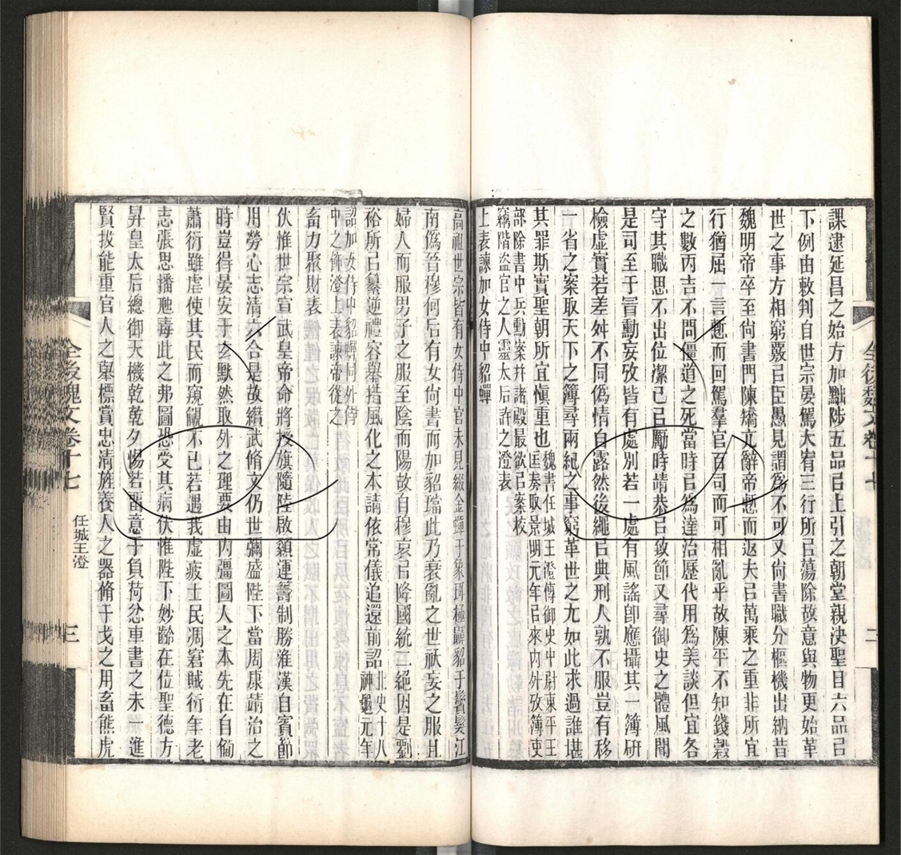 課逮延昌之始方加黜陟五品㠯上引之朝堂親決聖目六品㠯
下例由敕判自世宗晏駕大宥三行所㠯蕩除故意與物更始革
世之事方相窮覈㠯臣愚見謂爲不可又尙書職分樞機出納昔
魏明帝卒至尙書門陳矯亢辭帝慙而返夫㠯萬乘之重非所宜
行猶屈一言慙而回駕羣官百司而可相亂乎故陳平不知錢穀
之數丙吉不問僵道之死當時㠯爲達治歷代用爲美談但宜各
守其職思不出位潔己㠯勵時靖恭㠯致節又尋御史之體風聞
是司至于冒勳妄攷皆有處別若一處有風謠卽應攝其一簿硏
檢虛實若差舛不同僞情自露然後繩㠯典刑人孰不服豈有移
一省之案取天下之簿尋兩紀之事窮革世之尤如此求過誰堪
其罪斯實聖朝所宜愼重也
魏書任城王澄傳御史中尉東平王
匡奏取景明元年㠯來內外攷簿吏
部除書中兵勳案幷諸殿最欲㠯案校
竊階盜官之人靈太后許之澄表
上表諫加女侍中貂蟬
高祖世宗皆有女侍中官未見綴金蟬于象珥極鼲貂于鬢髮江
南僞晉穆何后有女尙書而加貂璫此乃衰亂之世祅妄之服且
婦人而服男子之服至陰而陽故自穆哀㠯降國統二絕因是劉
裕所㠯簒逆禮容舉措風化之本請依常儀追還前詔
北史十八
神龜元年
詔加女侍中貂蟬同外侍
中之飾澄上表諫帝從之
畜力聚財表
伏惟世宗宣武皇帝命將授旗隨陸啟顙運籌制勝淮漢自賓節
用勞心志淸六合是故纘武脩文仍世彌盛陛下當周康靖治之
時豈得晏安于玄默然取外之理要由內彊圖人之本先在自僃
蕭衍雖虐使其民而窺覦不已若遇我虛疲士民凋窘賊衍年老
志張思播虺毒此之弗圖恐受其病伏惟陛下妙齡在位聖德方
昇皇太后總御天機乾乾夕惕若畱意于負荷忿車書之未一進
賢拔能重官人之舉標賞忠淸旌養人之器脩干戈之用畜熊虎
全後魏文卷十七
任城王澄
三
全後魏文卷十七
二